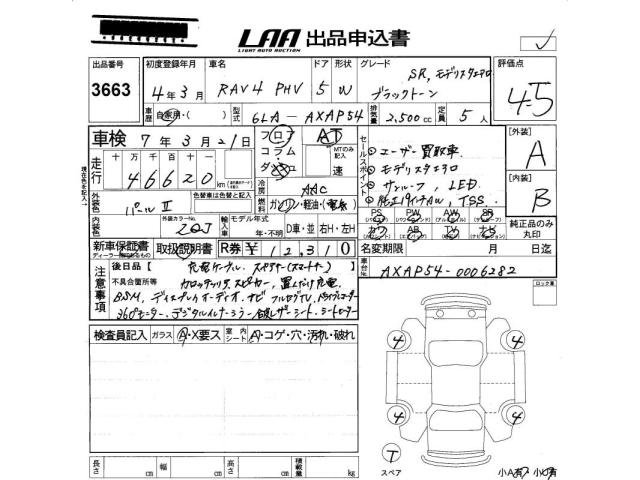 LAA 出品申込書
LIGHT AUTO AUCTION
出品番号 初度登録年月 車名 ドア 形状 グレード 評価点
3663 4年3月 RAV4 PHV 5 W SR, モデリスタエアロ ブラックトーン 4.5
車歴 自家用・( ) 型式 6LA - AXAP54 排気量 2,500 cc 定員 5人
車検 7年3月21日 フロア コラム ダッシュ AT MTのみ記入 速
走行 十万千百十 46620 km
現在色を記入
外装色 パールⅡ 色替車は色替と記入 冷房 AAC
内装色 外装カラーNo. 2QJ 輸入車 モデル年式 年・不明 燃料 ガソリン・軽油・(電気) D車・並 右H・左H
新車保証書 ディーラー印のあるもの 取扱説明書 R券 ¥ 12,310 名変期限 月 日迄
セールスポイント
ユーザー買取車
モデリスタエアロ
サンルーフ, LED
純正アルミ, TSS
PS PW AW SR
カワ AB TV ナビ
純正品のみ丸印
[外装] A
[内装] B
車台No. AXAP54-0006282
注意事項 後日品【 充電ケーブル. スペアキー(スマートキー)
不具合箇所等
BSM. ディスプレイオーディオ. ナビ フルセグTV. ドライブレコーダー
360°モニター. デジタルインナーミラー 合成レザーシート. シートヒーター
ロック車
検査員記入 ガラス A・X要ス 室内シート A・コゲ・穴・汚れ・破れ
4 4
4 4
T
スペア
長さ cm 幅 cm 高さ cm 積載量 kg
小A有 小U有